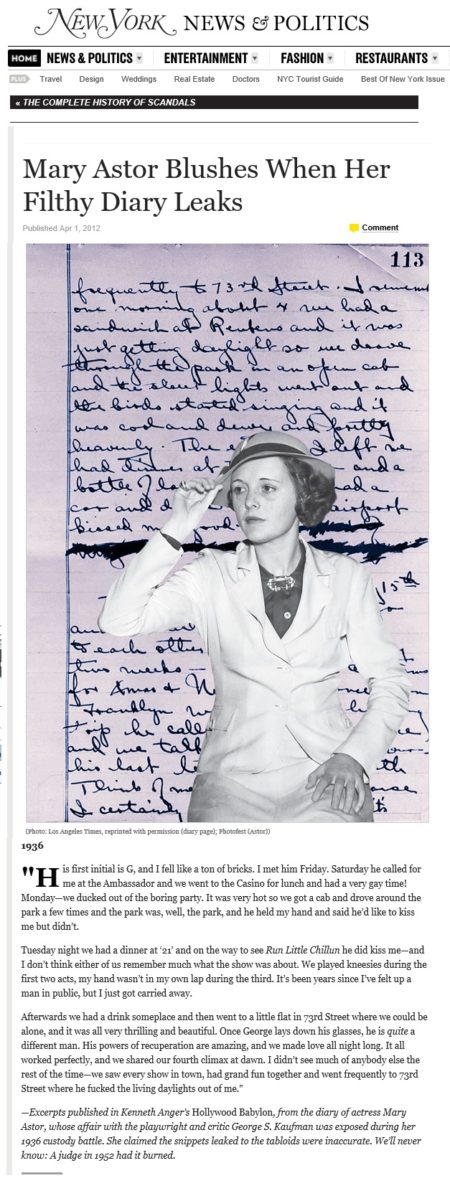 NEW YORK NEWS & POLITICS
HOME NEWS & POLITICS ENTERTAINMENT FASHION RESTAURANTS
PLUS Travel Design Weddings Real Estate Doctors NYC Tourist Guide Best Of New York Issue
« THE COMPLETE HISTORY OF SCANDALS
Mary Astor Blushes When Her
Filthy Diary Leaks
Published Apr 1, 2012 Comment
113
frequently to 73rd Street. I remem
one morning about 4 we had a
sandwich at Reubens and it was
just getting daylight so we drove
through the park in an open cab
and the street lights went out and
the birds started singing and it
was cool and dewy and pretty
heavenly. The I left we
had dinner at and a
bottle of had a
car and d airport
kissed m good
15th
an
to each othe
two weeks
for Xmas + N
Franklyn
trip he call
and we talk
his last le th
Think of me
I certainly
(Photo: Los Angeles Times, reprinted with permission (diary page); Photofest (Astor))
1936
"His first initial is G, and I fell like a ton of bricks. I met him Friday. Saturday he called for
me at the Ambassador and we went to the Casino for lunch and had a very gay time!
Monday—we ducked out of the boring party. It was very hot so we got a cab and drove around the
park a few times and the park was, well, the park, and he held my hand and said he'd like to kiss
me but didn't.
Tuesday night we had a dinner at '21' and on the way to see Run Little Chillun he did kiss me—and
I don't think either of us remember much what the show was about. We played kneesies during the
first two acts, my hand wasn't in my own lap during the third. It's been years since I've felt up a
man in public, but I just got carried away.
Afterwards we had a drink someplace and then went to a little flat in 73rd Street where we could be
alone, and it was all very thrilling and beautiful. Once George lays down his glasses, he is quite a
different man. His powers of recuperation are amazing, and we made love all night long. It all
worked perfectly, and we shared our fourth climax at dawn. I didn't see much of anybody else the
rest of the time—we saw every show in town, had grand fun together and went frequently to 73rd
Street where he fucked the living daylights out of me."
—Excerpts published in Kenneth Anger's Hollywood Babylon, from the diary of actress Mary
Astor, whose affair with the playwright and critic George S. Kaufman was exposed during her
1936 custody battle. She claimed the snippets leaked to the tabloids were inaccurate. We'll never
know: A judge in 1952 had it burned.